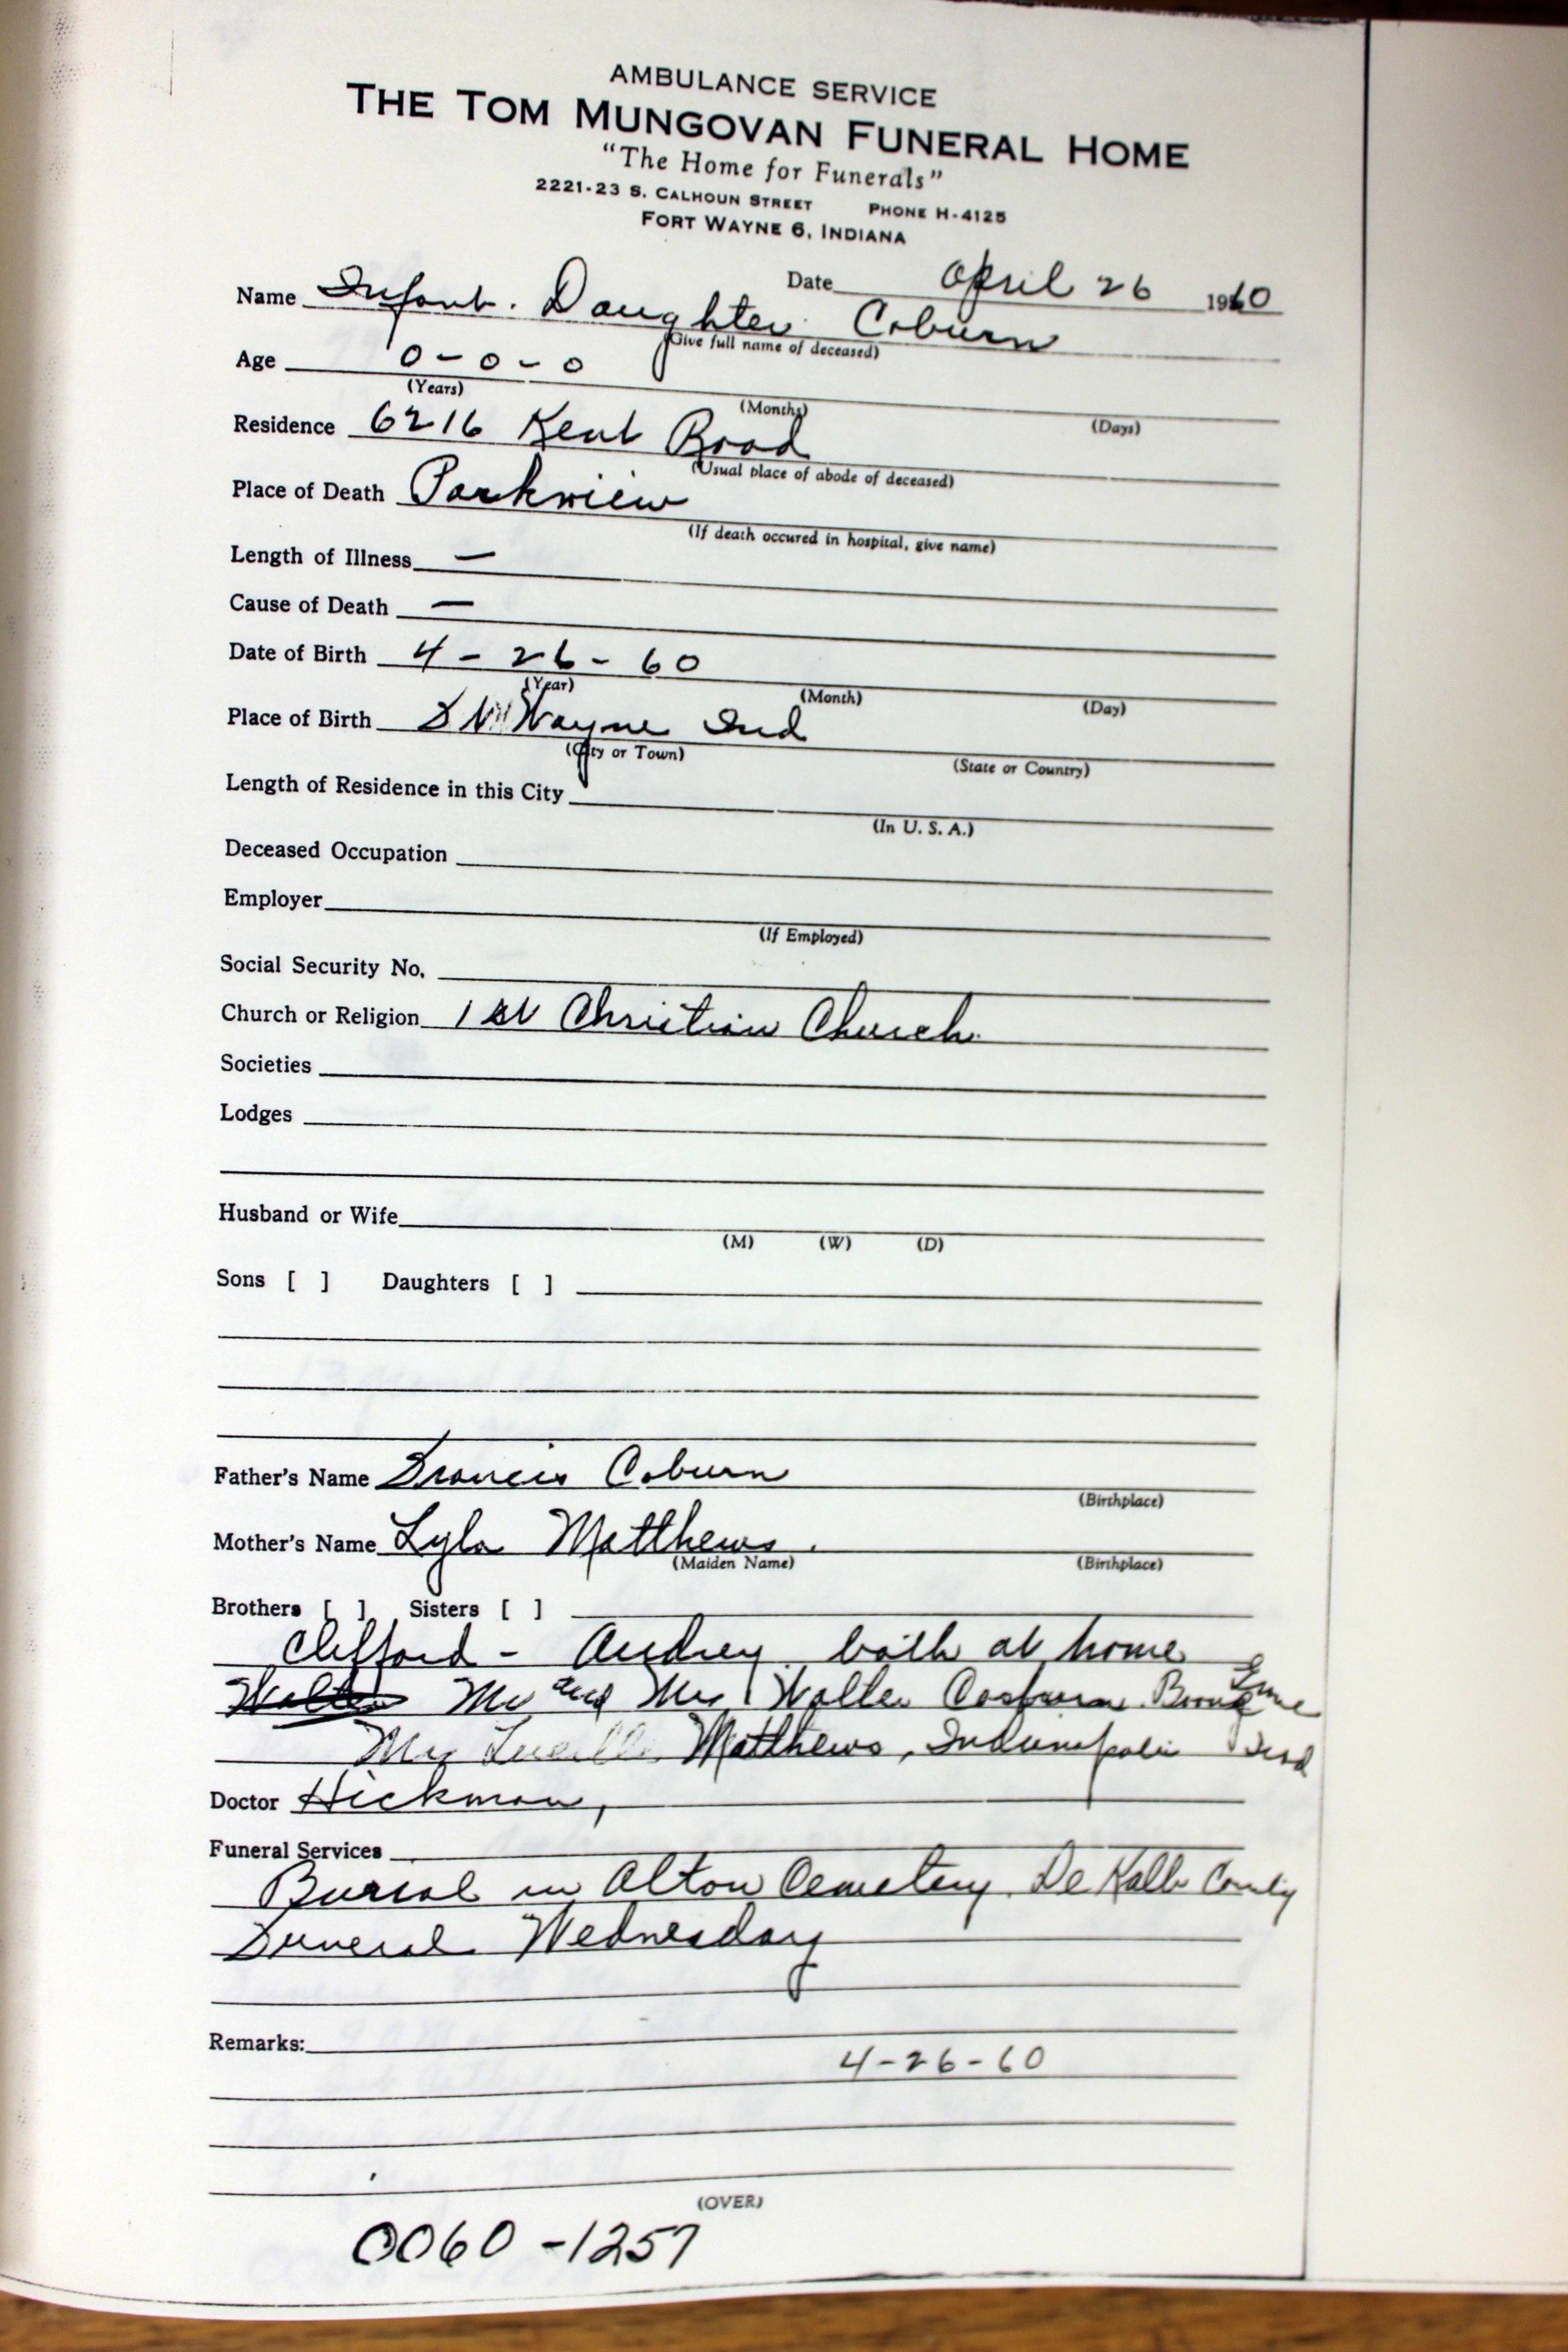 AMBULANCE SERVICE
THE TOM MUNGOVAN FUNERAL HOME
"The Home for Funerals"
2221-23 S. CALHOUN STREET PHONE H-4125
FORT WAYNE 6, INDIANA
Date April 26 1960
Name Infant. Daughter Coburn
(Give full name of deceased)
Age 0-0-0
(Years) (Months) (Days)
Residence 6216 Kent Road
(Usual place of abode of deceased)
Place of Death Parkview
(If death occured in hospital, give name)
Length of Illness —
Cause of Death —
Date of Birth 4-26-60
(Year) (Month) (Day)
Place of Birth Wayne Ind
(City or Town) (State or Country)
Length of Residence in this City
(In U. S. A.)
Deceased Occupation
Employer
(If Employed)
Social Security No.
Church or Religion 1st Christian Church
Societies
Lodges
Husband or Wife
(M) (W) (D)
Sons [ ] Daughters [ ]
Father's Name Francis Coburn
(Birthplace)
Mother's Name Lyla Matthews.
(Maiden Name) (Birthplace)
Brothers [ ] Sisters [ ]
Clifford - Audrey both at home
Walter Mr and Mrs Walter
Matthews, Ind
Doctor Hickman,
Funeral Services
Burial in Alton Cemetery. De Kalb County
Funeral Wednesday
Remarks:
4-26-60
(OVER)
0060-1257